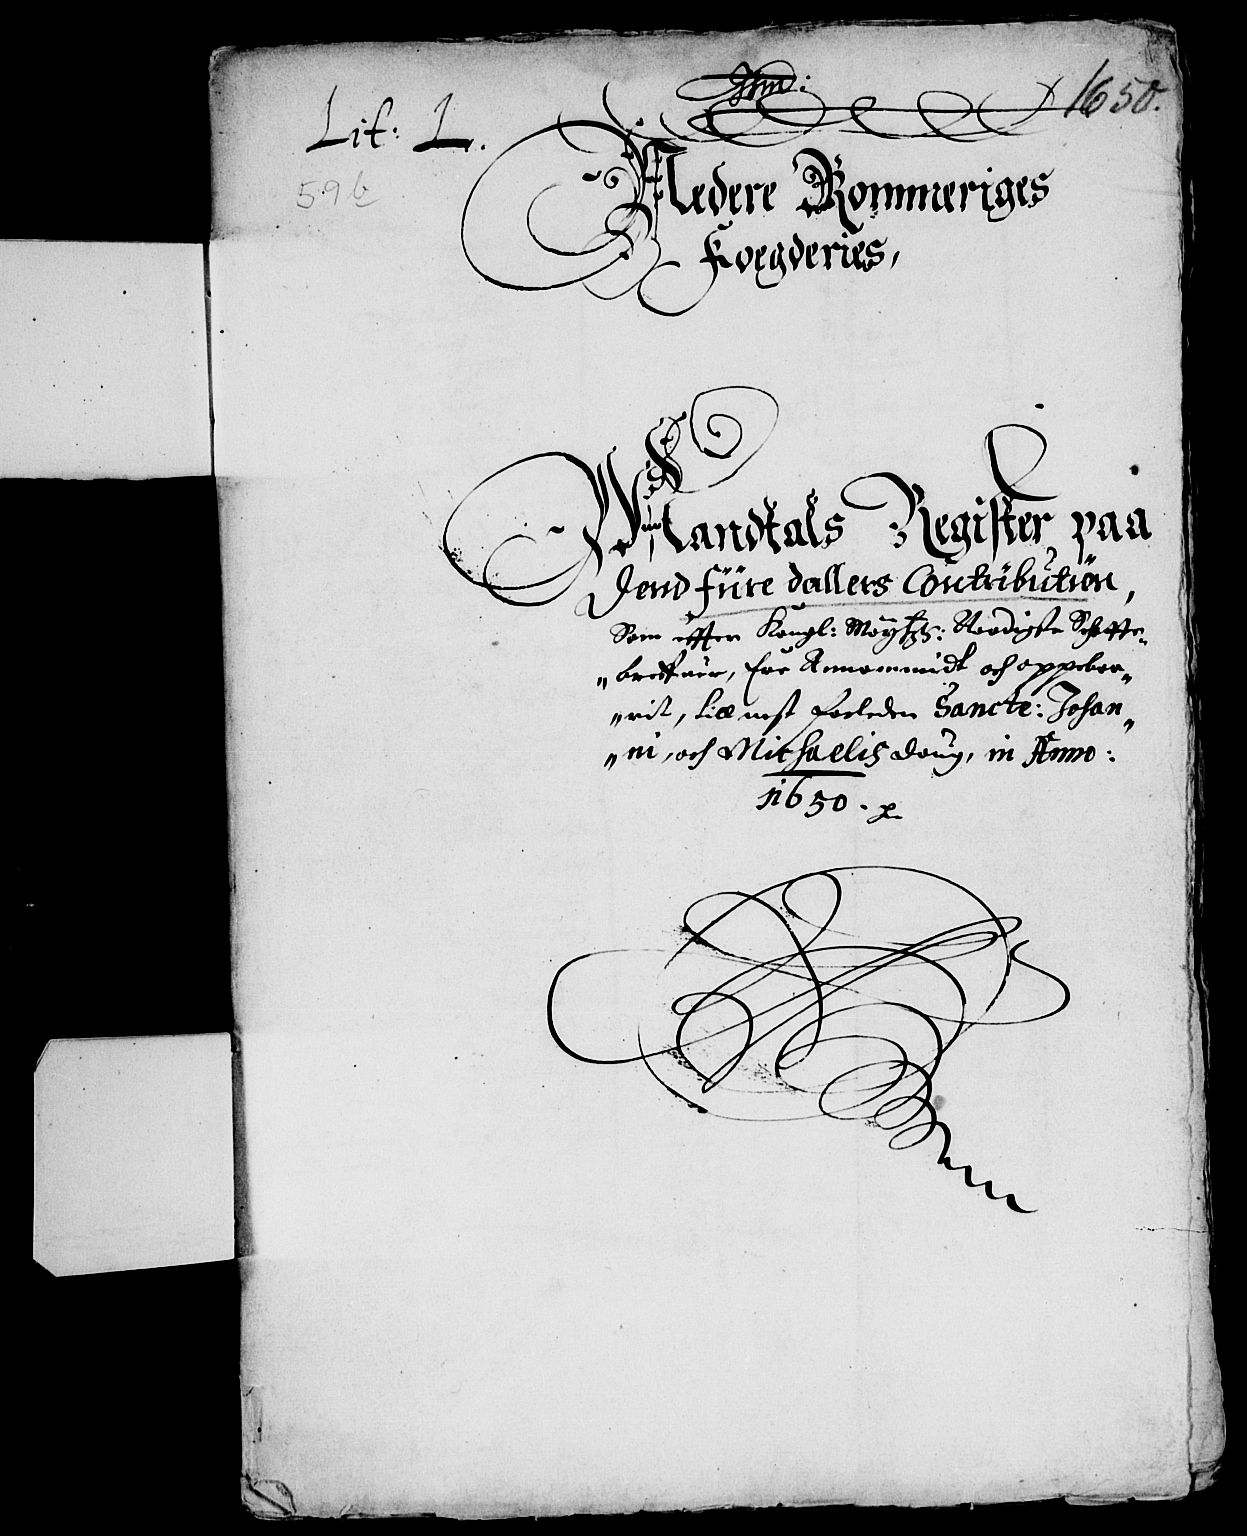 1650.
Lit: L.
59b
Nedere Rommeriges
Foegderies,
Mandtals Register paa
dend fiire dallers Contribution,
Som effter Kongl: Maytts: Naadigste Schatte„
„breffuer, ere Annammidt och oppebor„
„rit, till nest forleden Sancte: Johan„
„ni, och Michaelis Daug, in Anno:
1650.